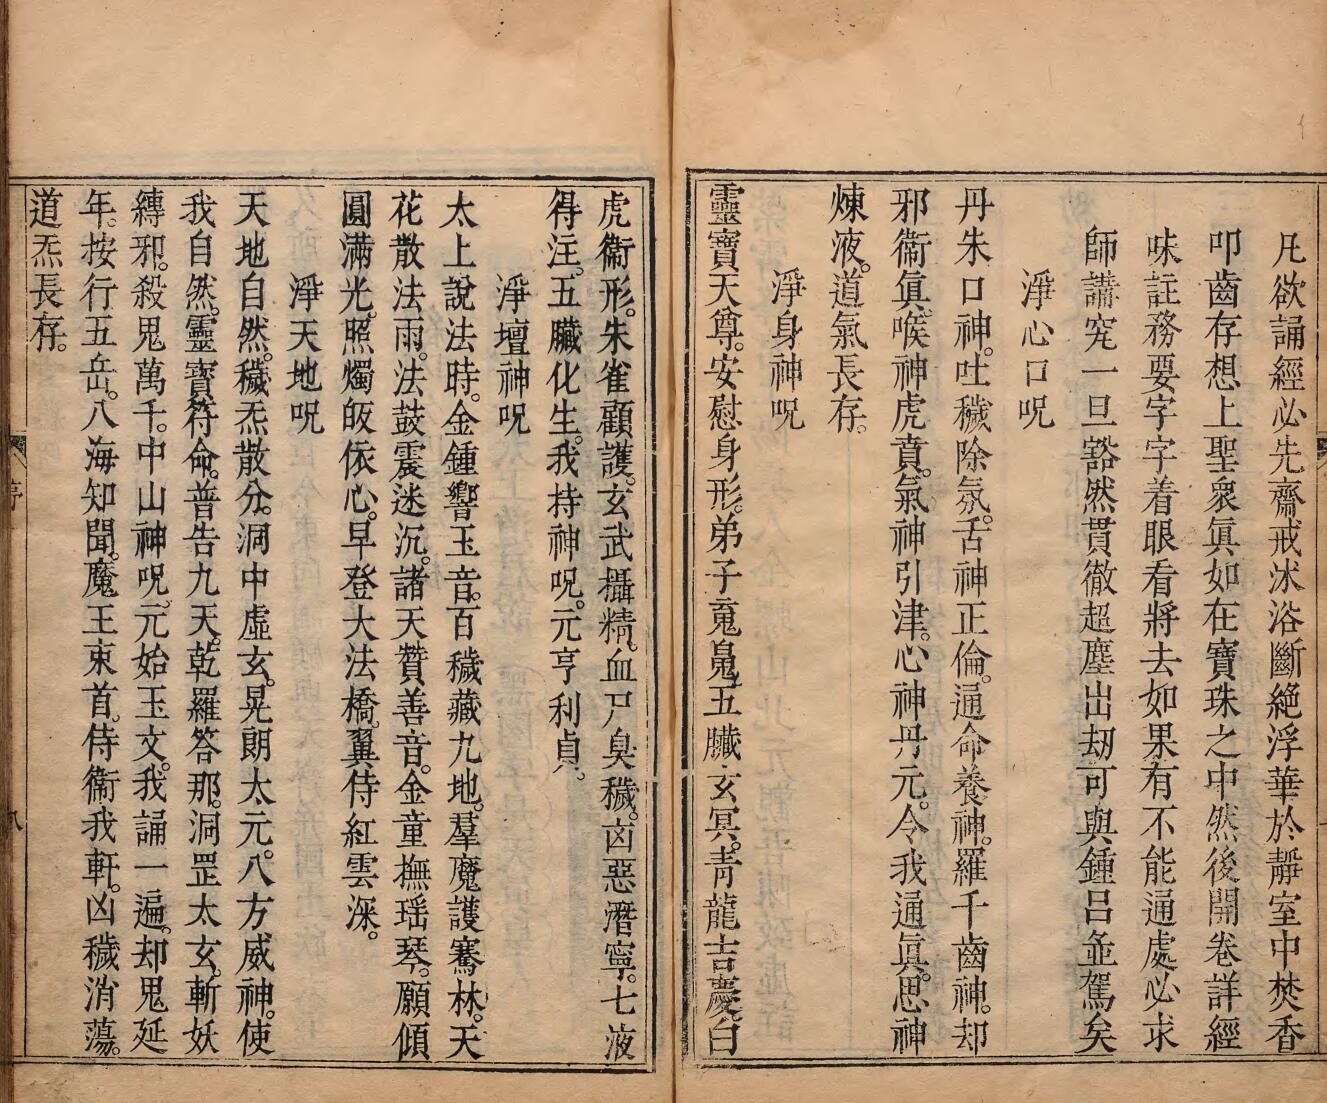 凡欲誦經必先齋戒沐浴斷絕浮華於靜室中焚香
叩齒存想上聖衆眞如在寶珠之中然後開卷詳經
味註務要字字着眼看將去如果有不能通處必求
師講究一旦豁然貫徹超塵出刼可與鍾呂並駕矣
淨心口呪
丹朱口神。吐穢除氛。舌神正倫。通命養神。羅千齒神。却
邪衞眞。喉神虎賁。氣神引津。心神丹元。令我通眞。思神
煉液。道氣長存。
淨身神呪
靈寶天尊。安慰身形。弟子䰟䰟五臟玄冥。靑龍吉慶。白
虎衞形。朱雀顧護。玄武攝精。血尸臭穢。凶惡潛寧。七液
得注。五臟化生。我持神呪。元亨利貞。
淨壇神呪
太上說法時。金鍾響玉音。百穢藏九地。羣魔護騫林。天
花散法雨。法鼓震迷沉。諸天贊善音。金童撫瑶琴。願傾
圓滿光。照燭皈依心。早登大法橋。翼侍紅雲深。
淨天地呪
天地自然。穢炁散分。洞中虛玄。晃朗太元。八方威神。使
我自然。靈寶符命。普告九天。乾羅答那。洞罡太玄。斬妖
縳邪。殺鬼萬千。中山神呪。元始玉文。我誦一遍。却鬼延
年。按行五岳。八海知聞。魔王束首。侍衞我軒。凶穢消蕩。
道炁長存。
序
八